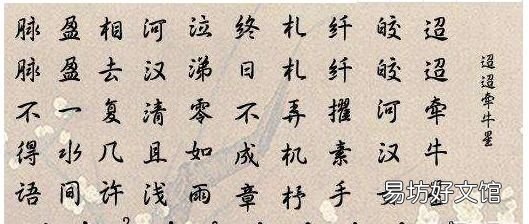 迢迢牵牛星
迢迢牵牛
皎皎河汉女
纤纤擢素手
札札弄机杼
终日不成章
泣涕零如雨
河汉清且浅
相去复几许
盈盈一水间
脉脉不得语
易坊好文馆